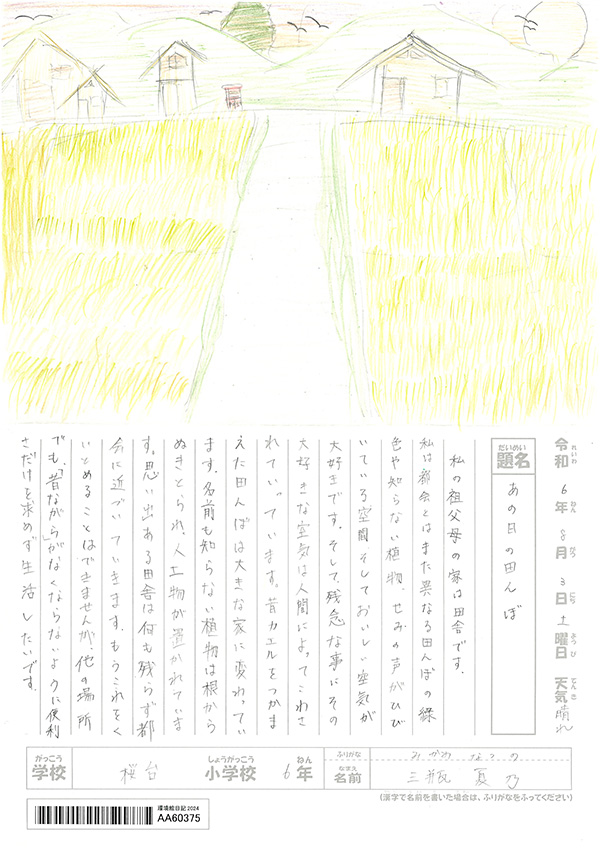 令和6年8月3日土曜日 天気晴れ
れいわ ねん がつ にち ようび てんき
題名 あの日の田んぼ
だいめい
私の祖父母の家は田舎です。
私は都会とはまた異なる田んぼの緑
色や知らない植物、せみの声がひび
いている空間、そしておいしい空気が
大好きです。そして、残念な事にその
大好きな空気は人間によってこわさ
れていっています。昔カエルをつかま
えた田んぼは大きな家に変わってい
ます。名前も知らない植物は根から
ぬきとられ、人工物が置かれていま
す。思い出ある田舎は何も残らず都
会に近づいていきます。もうこれをく
いとめることはできませんが、他の場所
でも、「昔ながら」がなくならないように便利
さだけを求めず生活したいです。
がっこう しょうがっこう ねん
学校 桜台 小学校 6年
ふりがな みかめ なつの
なまえ
名前 三瓶 夏乃
(漢字で名前を書いた場合は、ふりがなをふってください)
環境絵日記2024
AA60375